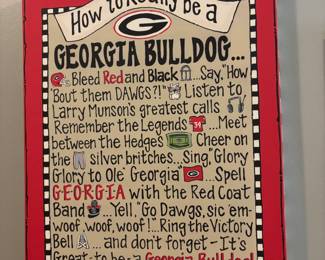 How to Really be a
G
GEORGIA BULLDOG...
Bleed Red and Black ... Say, "How
'Bout them DAWGS?!" Listen to
Larry Munson's greatest calls
Remember the Legends ... Meet
between the Hedges Cheer on
the silver britches... Sing, "Glory
Glory to Ole' Georgia" G ... Spell
GEORGIA with the Red Coat
Band ... Yell, "Go Dawgs, sic 'em-
woof, woof, woof!... Ring the Victory
Bell ... and don't forget - It's
Great to be a Georgia Bulldog!